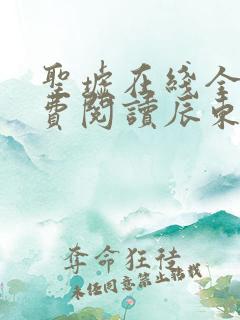 聖墟在綫全
費閱讀辰東
奪命狂徒
未经同意禁止转载